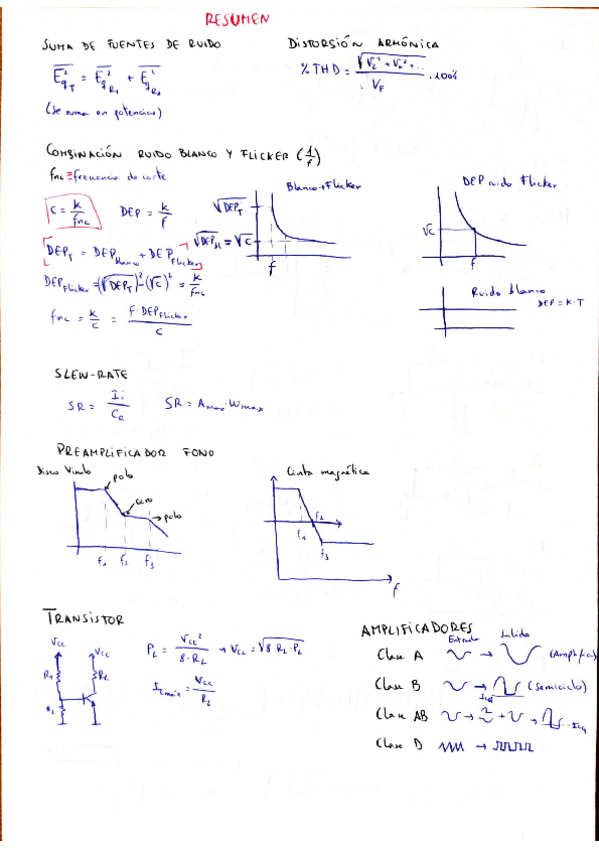 RESUMEN
SUMA DE FUENTES DE RUIDO
E²gT = E²gR1 + E²gR2
(Se suma en potencias)
DISTORSIÓN ARMÓNICA
% THD = √(V₂² + V₃² + ...) / VF · 100%
COMBINACIÓN RUIDO BLANCO Y FLICKER (1/f)
fnc ≡ frecuencia de corte
C = K/fnc DEP = K/f
DEPT = DEPBlanco + DEPFlicker
DEPFlicker = (√DEPT)² - (√C)² = K/fnc
fnc = K/C = f · DEPFlicker / C
Blanco + Flicker
√DEPT
√DEPBl = √C
f
DEP ruido Flicker
√C
f
Ruido blanco
DEP = K·T
SLEW-RATE
SR = Ii/CR SR = Amax · Wmax
PREAMPLIFICADOR FONO
Disco Vinilo
polo
cero
polo
f₁ f₂ f₃
Cinta magnética
f₁ f₂
f₃
f
TRANSISTOR
Vcc Vcc
R₁ RL
R₂
PL = Vcc²/8·RL → Vcc = √8·RL·PL
ICmáx = Vcc/RL
AMPLIFICADORES
Entrada Salida
Clase A → (Amplifica)
Clase B → (Semiciclo)
ICQ
Clase AB → + → ICQ
Clase D →